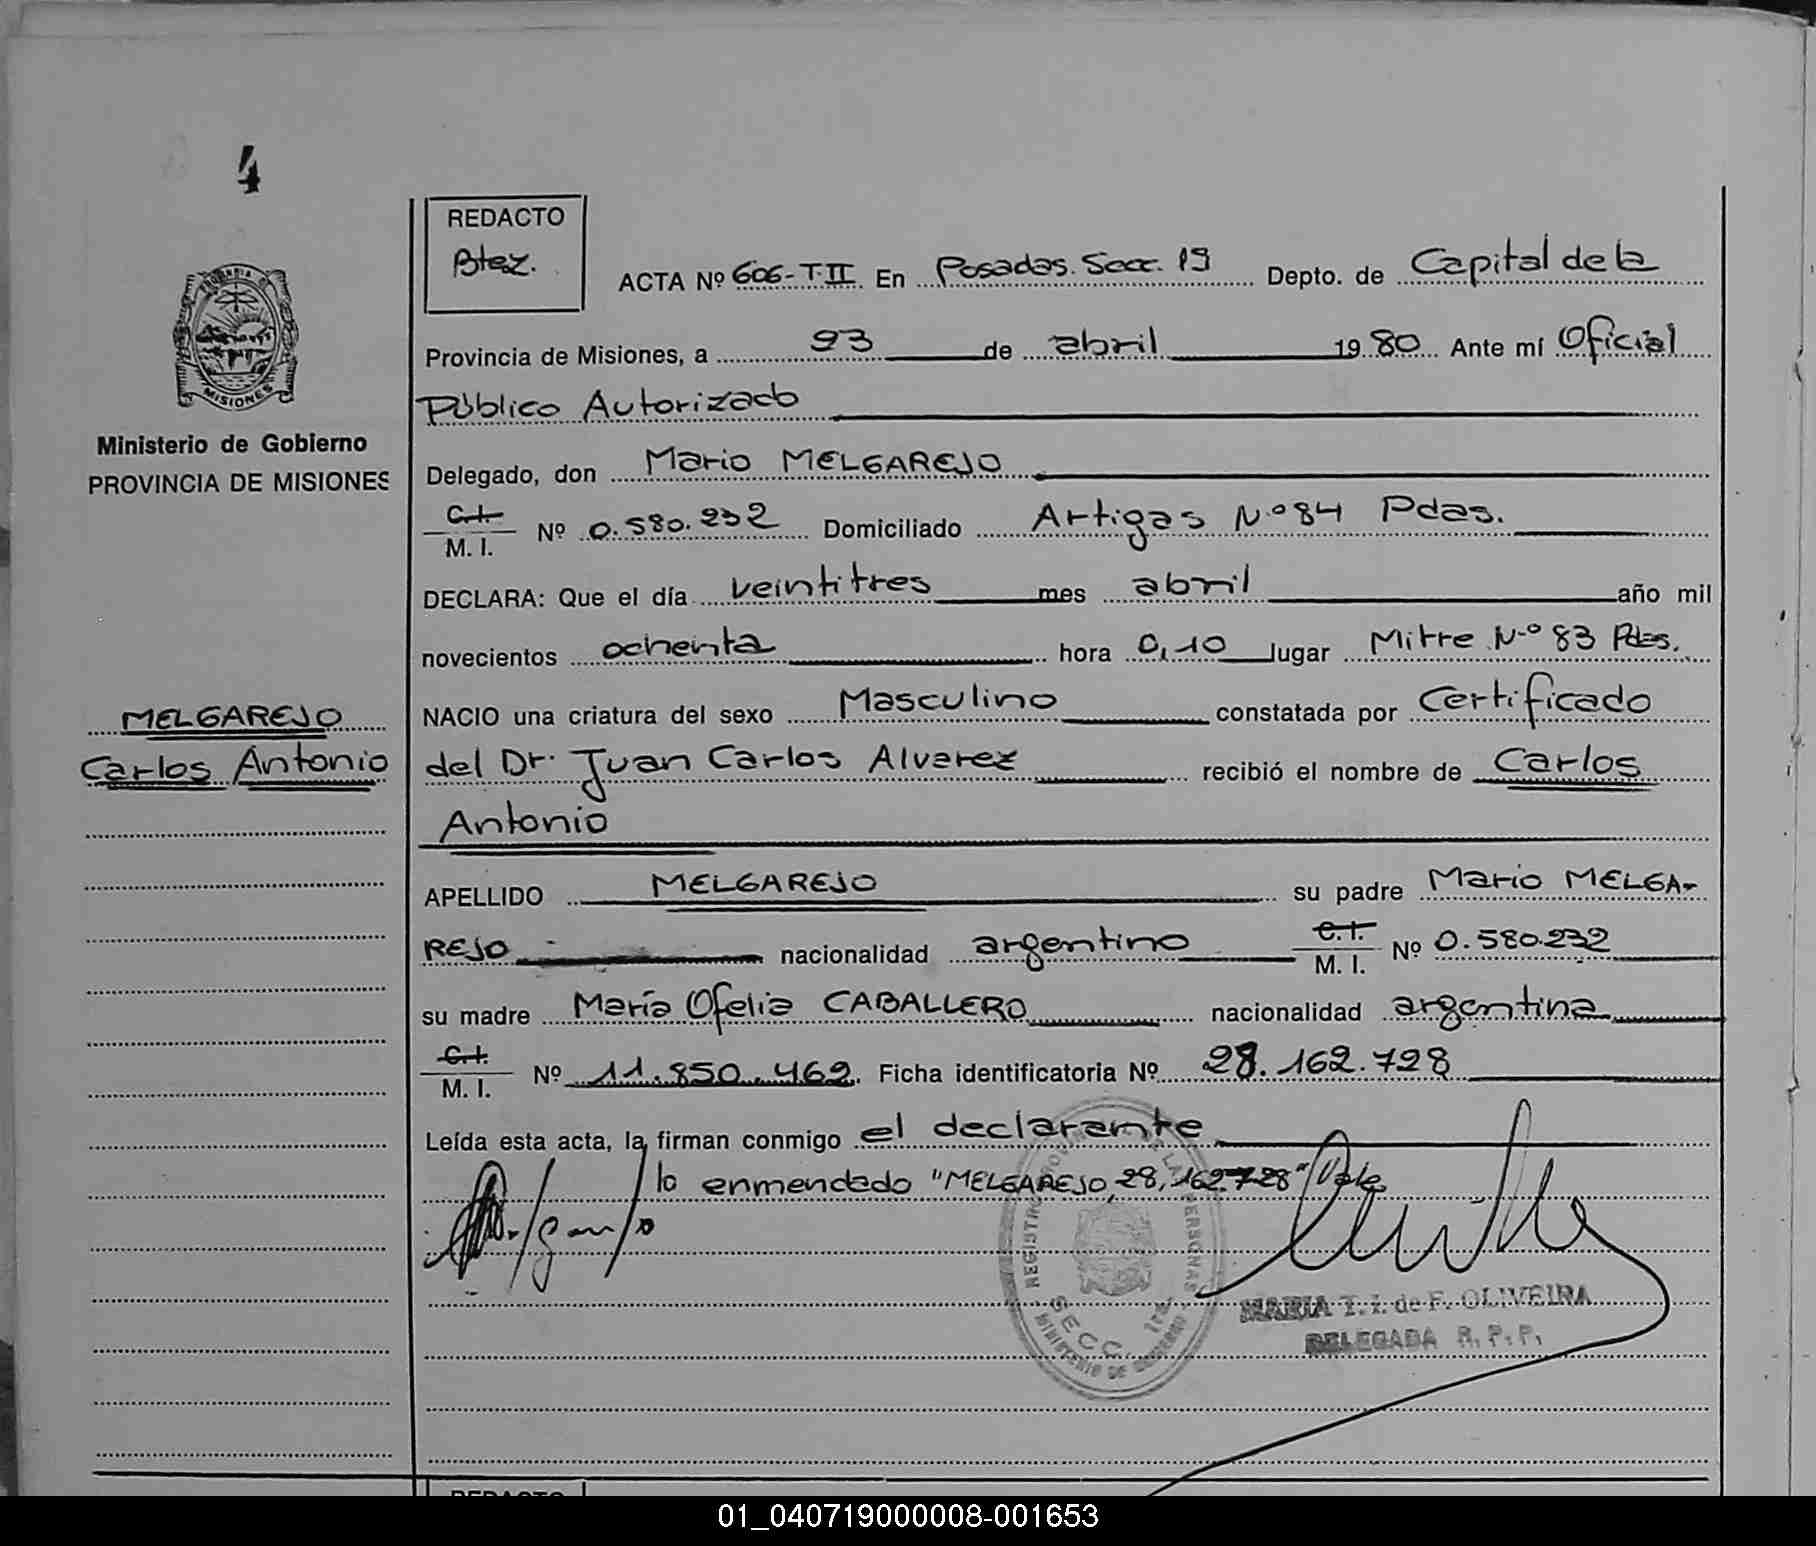 4
REDACTO
Btez.
ACTA Nº 606-T-II. En Posadas. Secc. 1ª Depto. de Capital de la
Provincia de Misiones, a 23 de abril 1980 Ante mí Oficial
Público Autorizado
Delegado, don Mario MELGAREJO
Ministerio de Gobierno
PROVINCIA DE MISIONES
MISIONES
C.I.
M. I. Nº 0.580.232 Domiciliado Artigas Nº 84 Pdas.
DECLARA: Que el día veintitres mes abril año mil
novecientos ochenta hora 0,10 lugar Mitre Nº 83 Pdas.
NACIO una criatura del sexo Masculino constatada por Certificado
MELGAREJO
Carlos Antonio
del Dr. Juan Carlos Alvarez recibió el nombre de Carlos
Antonio
APELLIDO MELGAREJO su padre Mario MELGA-
REJO nacionalidad argentino C.I. M. I. Nº 0.580.232
su madre María Ofelia CABALLERO nacionalidad argentina
C.I.
M. I. Nº 11.850.462. Ficha identificatoria Nº 28.162.728
Leída esta acta, la firman conmigo el declarante
lo enmendado "MELGAREJO, 28,162.728" Vale
REGISTRO PROVINCIAL DE LAS PERSONAS
SECC. 1ra.
MINISTERIO DE GOBIERNO
MARIA T. I. de F. OLIVEIRA
DELEGADA R. P. P.
REDACTO
01_040719000008-001653